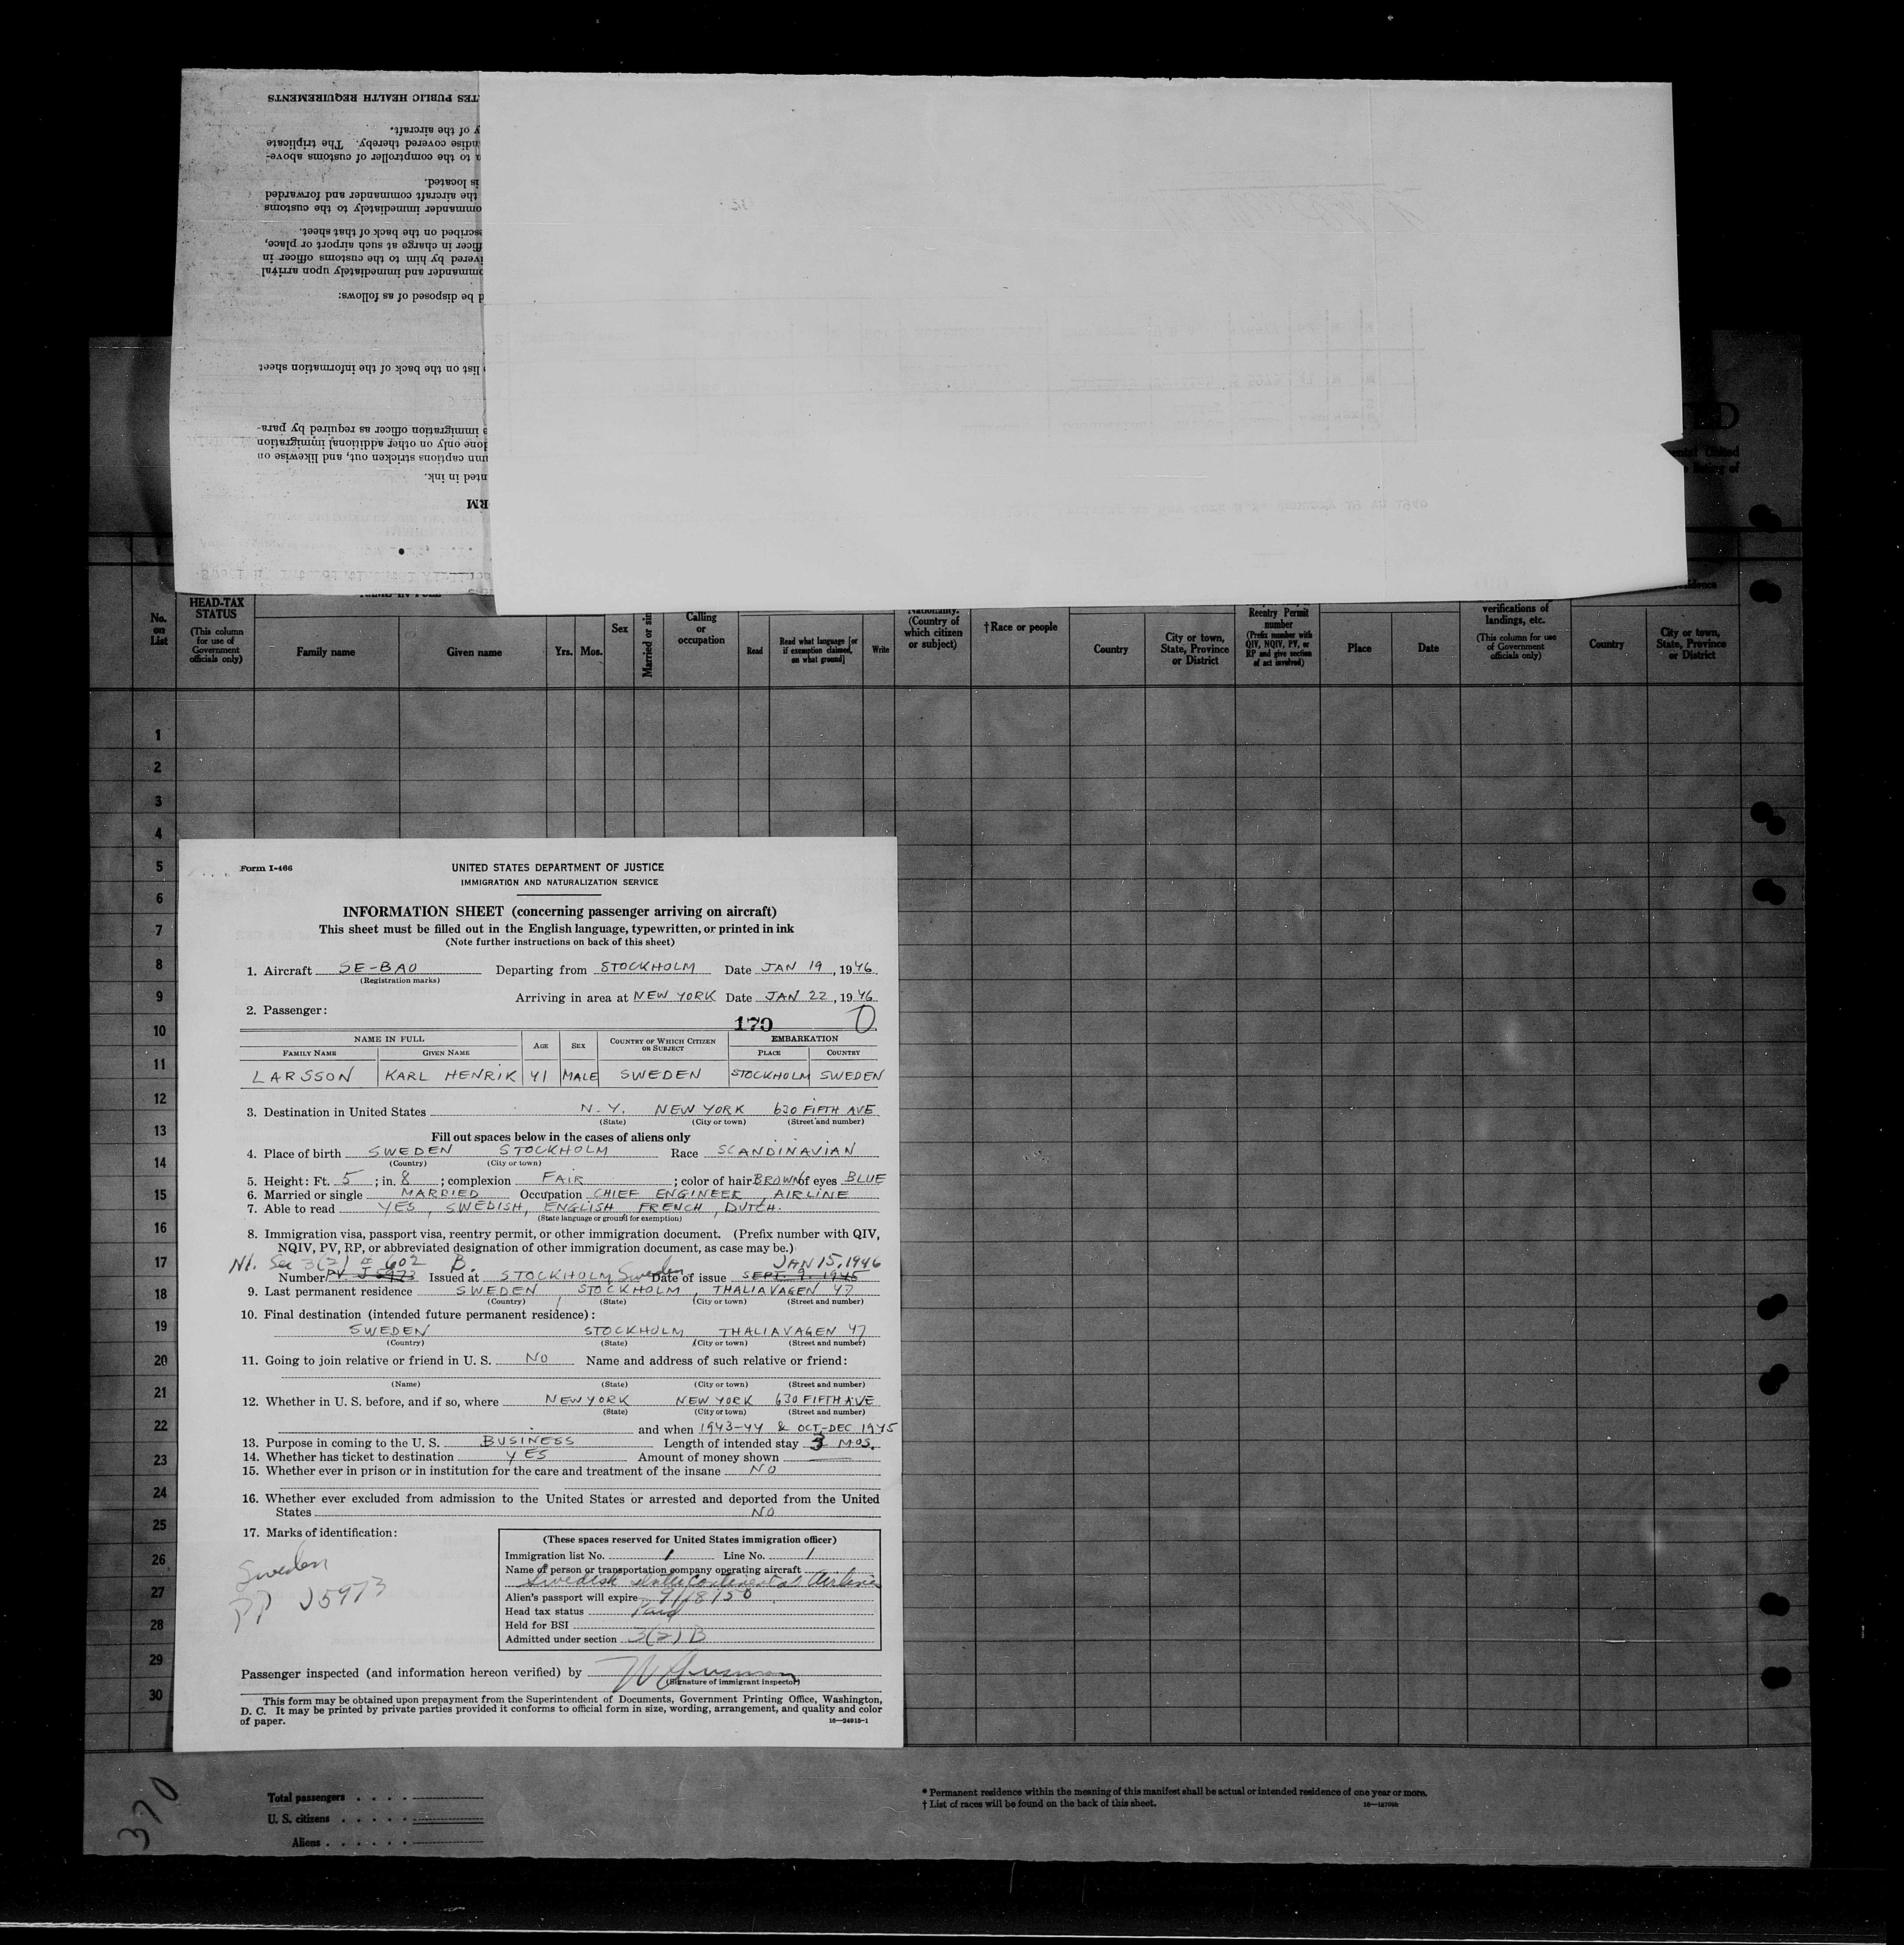 TES PUBLIC HEALTH REQUIREMENTS
y of the aircraft.
ndise covered thereby. The triplicate
to the comptroller of customs above-
is located.
the aircraft commander and forwarded
ommander immediately to the customs
scribed on the back of that sheet.
fficer in charge at such airport or place,
ivered by him to the customs officer in
ommander and immediately upon arrival
d be disposed of as follows:
list on the back of the information sheet
e immigration officer as required by para-
one only on other additional immigration
mn captions stricken out, and likewise on
nted in ink.
RM
No. on List
HEAD-TAX STATUS
(This column for use of Government officials only)
Family name
Given name
Yrs. Mos.
Sex
Calling or occupation
Read
Read what language [or if exemption claimed, on what ground]
Write
(Country of which citizen or subject)
†Race or people
Country
City or town, State, Province or District
Reentry Permit number
(Prefix number with QIV, NQIV, PV, or RP and give section of act involved)
Place
Date
verifications of landings, etc.
(This column for use of Government officials only)
Country
City or town, State, Province or District
1
2
3
4
5
6
7
8
9
10
11
12
13
14
15
16
17
18
19
20
21
22
23
24
25
26
27
28
29
30
Form I-466
UNITED STATES DEPARTMENT OF JUSTICE
IMMIGRATION AND NATURALIZATION SERVICE
INFORMATION SHEET (concerning passenger arriving on aircraft)
This sheet must be filled out in the English language, typewritten, or printed in ink
(Note further instructions on back of this sheet)
1. Aircraft SE-BAO Departing from STOCKHOLM Date JAN 19, 1946.
(Registration marks)
Arriving in area at NEW YORK Date JAN 22, 1946
2. Passenger:
170 0
NAME IN FULL AGE SEX COUNTRY OF WHICH CITIZEN OR SUBJECT EMBARKATION
FAMILY NAME GIVEN NAME PLACE COUNTRY
LARSSON KARL HENRIK 41 MALE SWEDEN STOCKHOLM SWEDEN
3. Destination in United States N.Y. NEW YORK 630 FIFTH AVE
(State) (City or town) (Street and number)
Fill out spaces below in the cases of aliens only
4. Place of birth SWEDEN STOCKHOLM Race SCANDINAVIAN
(Country) (City or town)
5. Height: Ft. 5; in. 8; complexion FAIR; color of hair BROWN of eyes BLUE
6. Married or single MARRIED Occupation CHIEF ENGINEER, AIRLINE
7. Able to read YES, SWEDISH, ENGLISH, FRENCH, DUTCH.
(State language or ground for exemption)
8. Immigration visa, passport visa, reentry permit, or other immigration document. (Prefix number with QIV,
NQIV, PV, RP, or abbreviated designation of other immigration document, as case may be.)
NI. Sec 3(2) # 602 B. JAN 15, 1946
Number PV J5973 Issued at STOCKHOLM Sweden Date of issue SEPT. 9. 1945
9. Last permanent residence SWEDEN STOCKHOLM, THALIAVAGEN 47
(Country) (State) (City or town) (Street and number)
10. Final destination (intended future permanent residence):
SWEDEN STOCKHOLM THALIAVAGEN 47
(Country) (State) (City or town) (Street and number)
11. Going to join relative or friend in U. S. NO Name and address of such relative or friend:
(Name) (State) (City or town) (Street and number)
12. Whether in U. S. before, and if so, where NEW YORK NEW YORK 630 FIFTH AVE
(State) (City or town) (Street and number)
and when 1943-44 & OCT-DEC 1945
13. Purpose in coming to the U. S. BUSINESS Length of intended stay 3 MOS.
14. Whether has ticket to destination YES Amount of money shown
15. Whether ever in prison or in institution for the care and treatment of the insane NO
16. Whether ever excluded from admission to the United States or arrested and deported from the United
States NO
17. Marks of identification:
Sweden
PP J5973
(These spaces reserved for United States immigration officer)
Immigration list No. 1 Line No. 1
Name of person or transportation company operating aircraft
Swedish Intercontinental Airlines
Alien's passport will expire 9/18/50
Head tax status Paid
Held for BSI
Admitted under section 3(2) B
Passenger inspected (and information hereon verified) by
(Signature of immigrant inspector)
This form may be obtained upon prepayment from the Superintendent of Documents, Government Printing Office, Washington,
D. C. It may be printed by private parties provided it conforms to official form in size, wording, arrangement, and quality and color
of paper. 16—24915-1
370
Total passengers
U. S. citizens
Aliens
* Permanent residence within the meaning of this manifest shall be actual or intended residence of one year or more.
† List of races will be found on the back of this sheet.